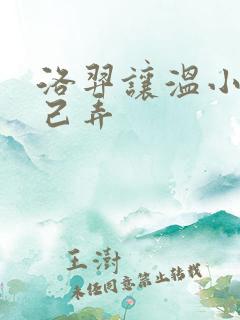 洛羿讓溫小
己弄
王澍
未经同意禁止转载